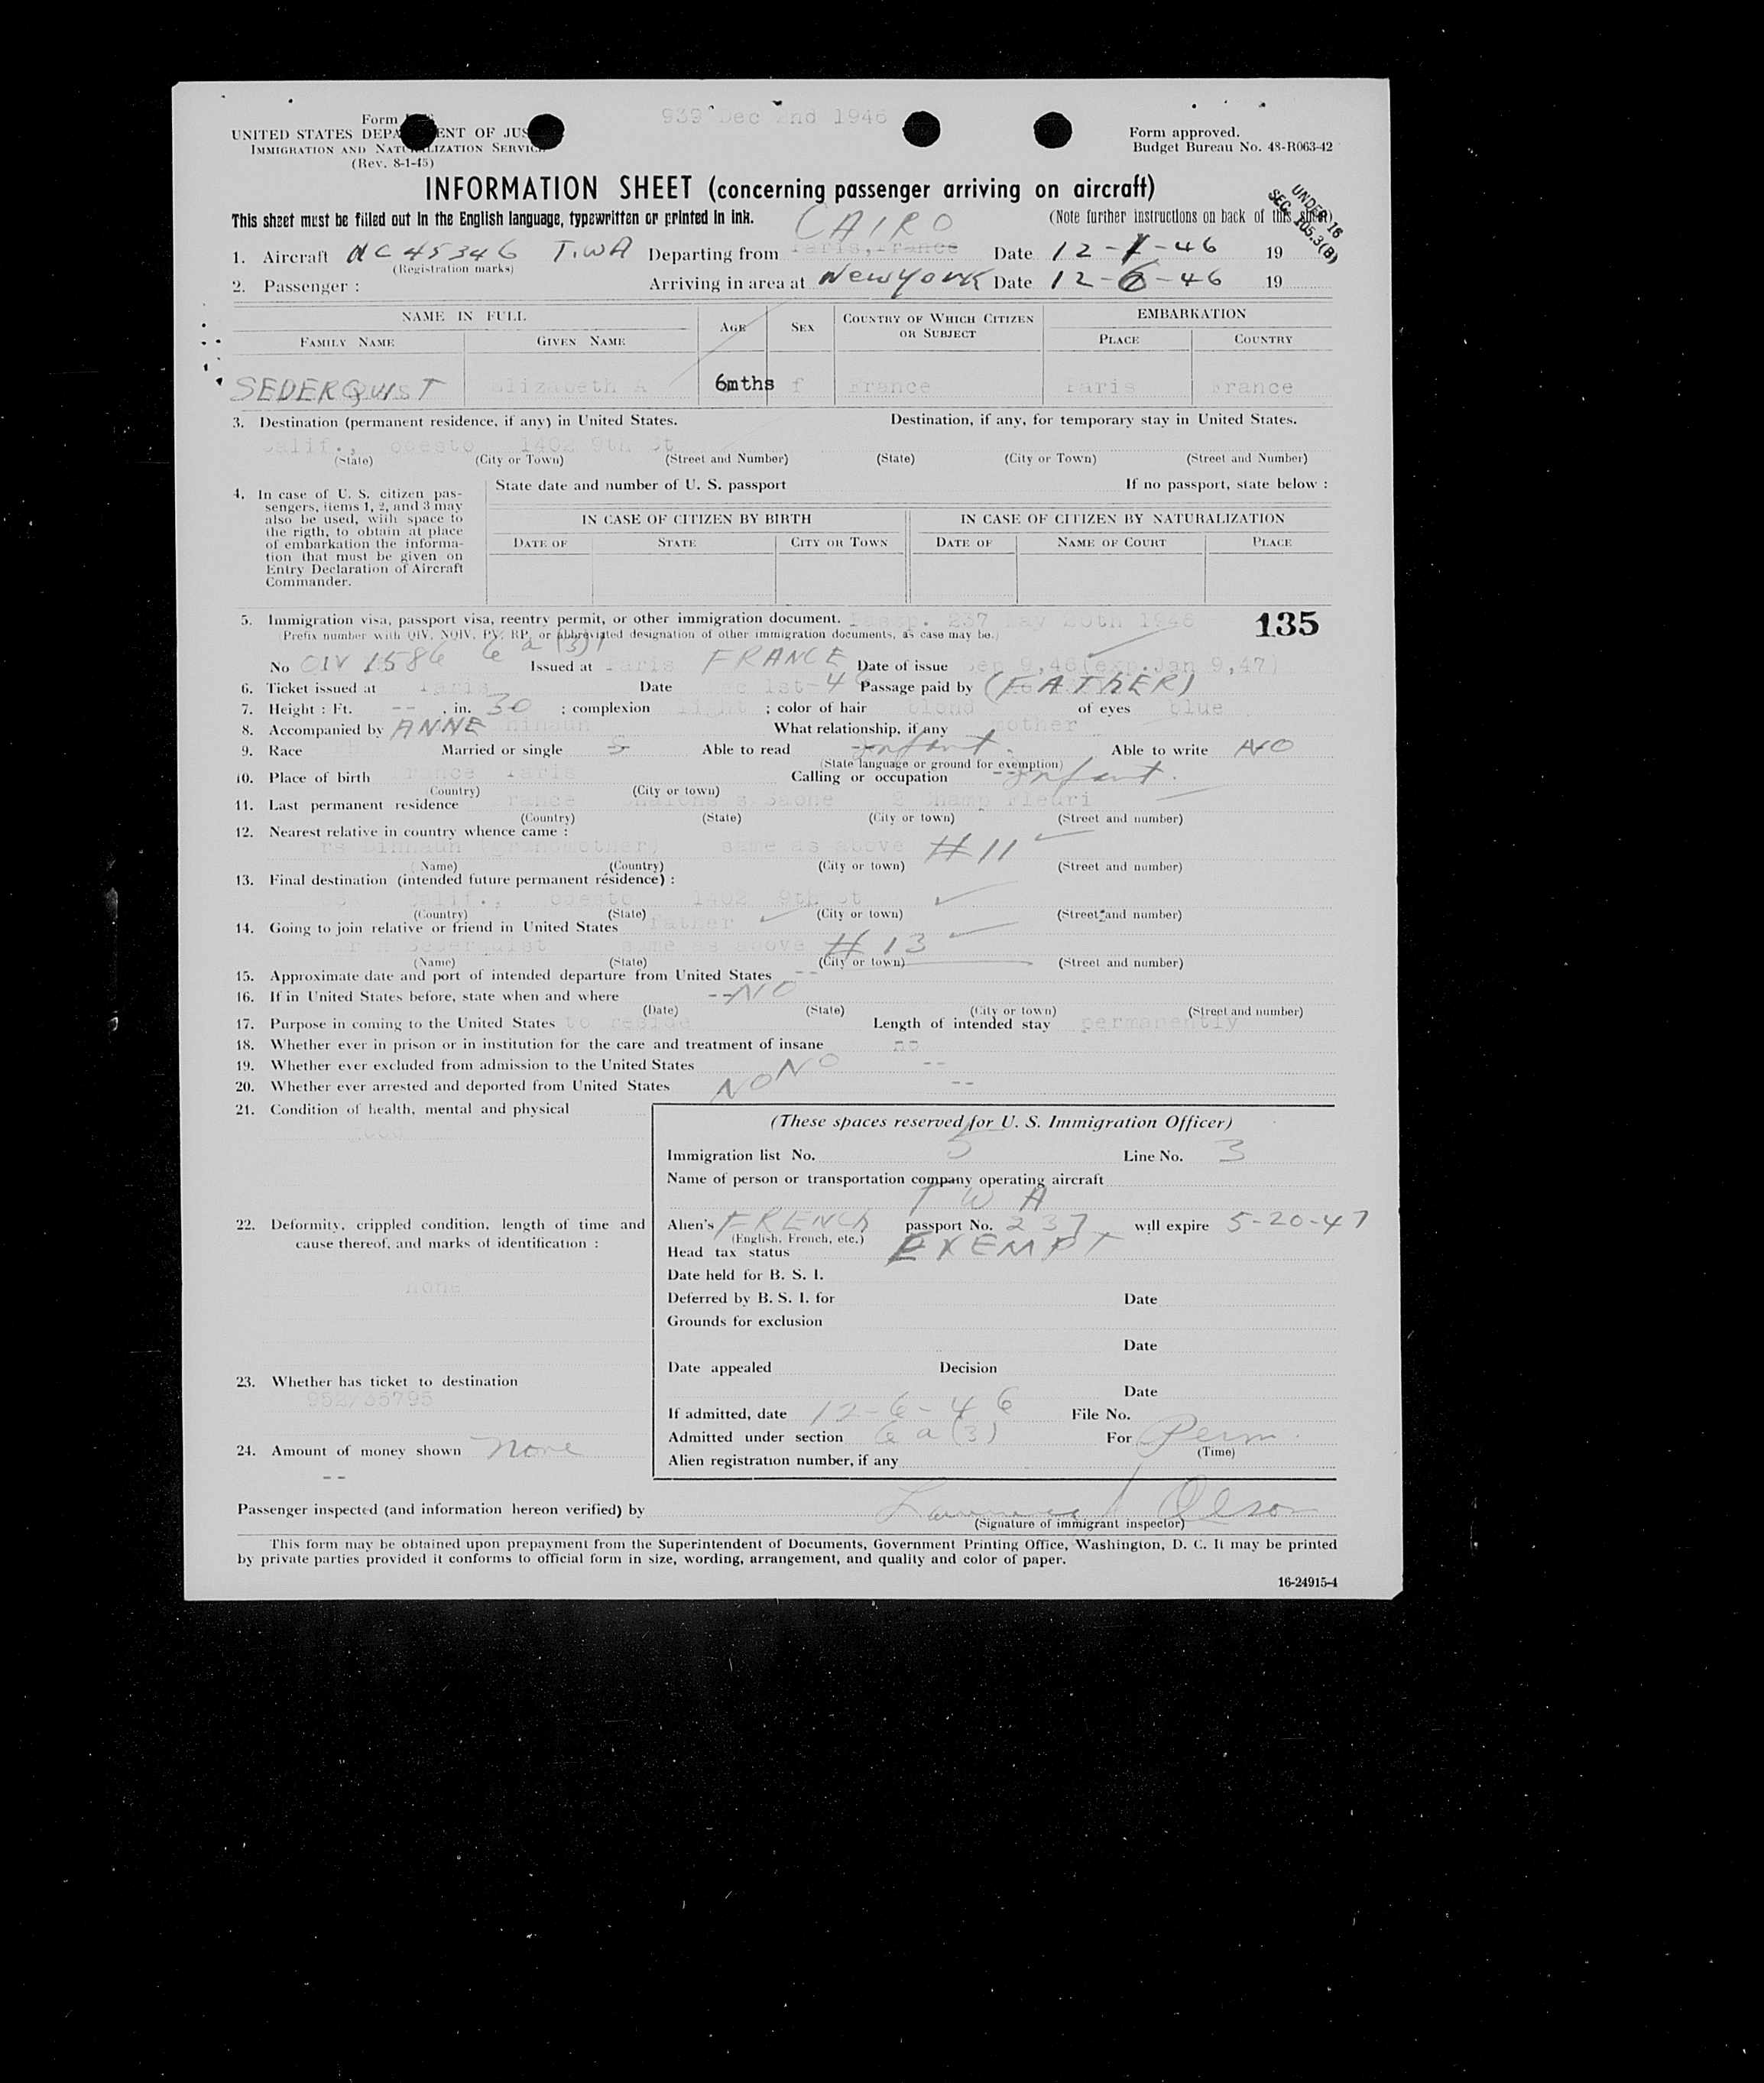 939 Dec 2nd 1946
Form
UNITED STATES DEPA ENT OF JUS
IMMIGRATION AND NATURALIZATION SERVICE
(Rev. 8-1-45)
Form approved.
Budget Bureau No. 48-R063-42
INFORMATION SHEET (concerning passenger arriving on aircraft)
UNDER 16
SEC. 105.3(B)
This sheet must be filled out in the English language, typewritten or printed in ink. (Note further instructions on back of this sheet).
CAIRO
1. Aircraft NC 45346 T.W.A Departing from Paris, France Date 12-1-46 19
(Registration marks)
2. Passenger : Arriving in area at New York Date 12-6-46 19
NAME IN FULL AGE SEX COUNTRY OF WHICH CITIZEN OR SUBJECT EMBARKATION
FAMILY NAME GIVEN NAME PLACE COUNTRY
SEDERQUIST Elizabeth A 6mths f France Paris France
3. Destination (permanent residence, if any) in United States. Destination, if any, for temporary stay in United States.
Calif., odesto 1402 9th St
(State) (City or Town) (Street and Number) (State) (City or Town) (Street and Number)
4. In case of U. S. citizen pas-
sengers, items 1, 2, and 3 may
also be used, with space to
the rigth, to obtain at place
of embarkation the informa-
tion that must be given on
Entry Declaration of Aircraft
Commander.
State date and number of U. S. passport If no passport, state below :
IN CASE OF CITIZEN BY BIRTH IN CASE OF CITIZEN BY NATURALIZATION
DATE OF STATE CITY OR TOWN DATE OF NAME OF COURT PLACE
5. Immigration visa, passport visa, reentry permit, or other immigration document. Passp. 237 May 20th 1946
135
(Prefix number with QIV, NQIV, PV, RP, or abbreviated designation of other immigration documents, as case may be.)
No QIV 1586 6 a (3) Issued at Paris FRANCE Date of issue Sep 9,46(exp.Jan 9,47)
6. Ticket issued at Paris Date Dec 1st-46 Passage paid by (FATHER)
7. Height : Ft. -- , in. 30 ; complexion light ; color of hair blond of eyes blue
8. Accompanied by ANNE What relationship, if any mother
9. Race Married or single S Able to read -- Infant. Able to write NO
(State language or ground for exemption)
10. Place of birth France Paris Calling or occupation -- Infant.
(Country) (City or town)
11. Last permanent residence France Chalons s Saone 2 Champ Fleuri
(Country) (State) (City or town) (Street and number)
12. Nearest relative in country whence came :
Mrs (Grandmother) same as above #11
(Name) (Country) (City or town) (Street and number)
13. Final destination (intended future permanent résidence) :
Calif., odesto 1402 9th St
(Country) (State) (City or town) (Street and number)
14. Going to join relative or friend in United States Father
Mr Sederquist same as above #13
(Name) (State) (City or town) (Street and number)
15. Approximate date and port of intended departure from United States --
16. If in United States before, state when and where -- NO
(Date) (State) (City or town) (Street and number)
17. Purpose in coming to the United States to reside Length of intended stay permanently
18. Whether ever in prison or in institution for the care and treatment of insane no
19. Whether ever excluded from admission to the United States NO --
20. Whether ever arrested and deported from United States NO --
21. Condition of health, mental and physical
good
22. Deformity, crippled condition, length of time and
cause thereof, and marks of identification :
none
23. Whether has ticket to destination
952/35795
24. Amount of money shown None
--
(These spaces reserved for U. S. Immigration Officer)
Immigration list No. 5 Line No. 3
Name of person or transportation company operating aircraft
T W A
Alien's FRENCH passport No. 237 will expire 5-20-47
(English, French, etc.)
Head tax status EXEMPT
Date held for B. S. I.
Deferred by B. S. I. for Date
Grounds for exclusion
Date
Date appealed Decision
Date
If admitted, date 12-6-46 File No.
Admitted under section 6 a (3) For Perm.
(Time)
Alien registration number, if any
Passenger inspected (and information hereon verified) by Olson
(Signature of immigrant inspector)
This form may be obtained upon prepayment from the Superintendent of Documents, Government Printing Office, Washington, D. C. It may be printed
by private parties provided it conforms to official form in size, wording, arrangement, and quality and color of paper.
16-24915-4